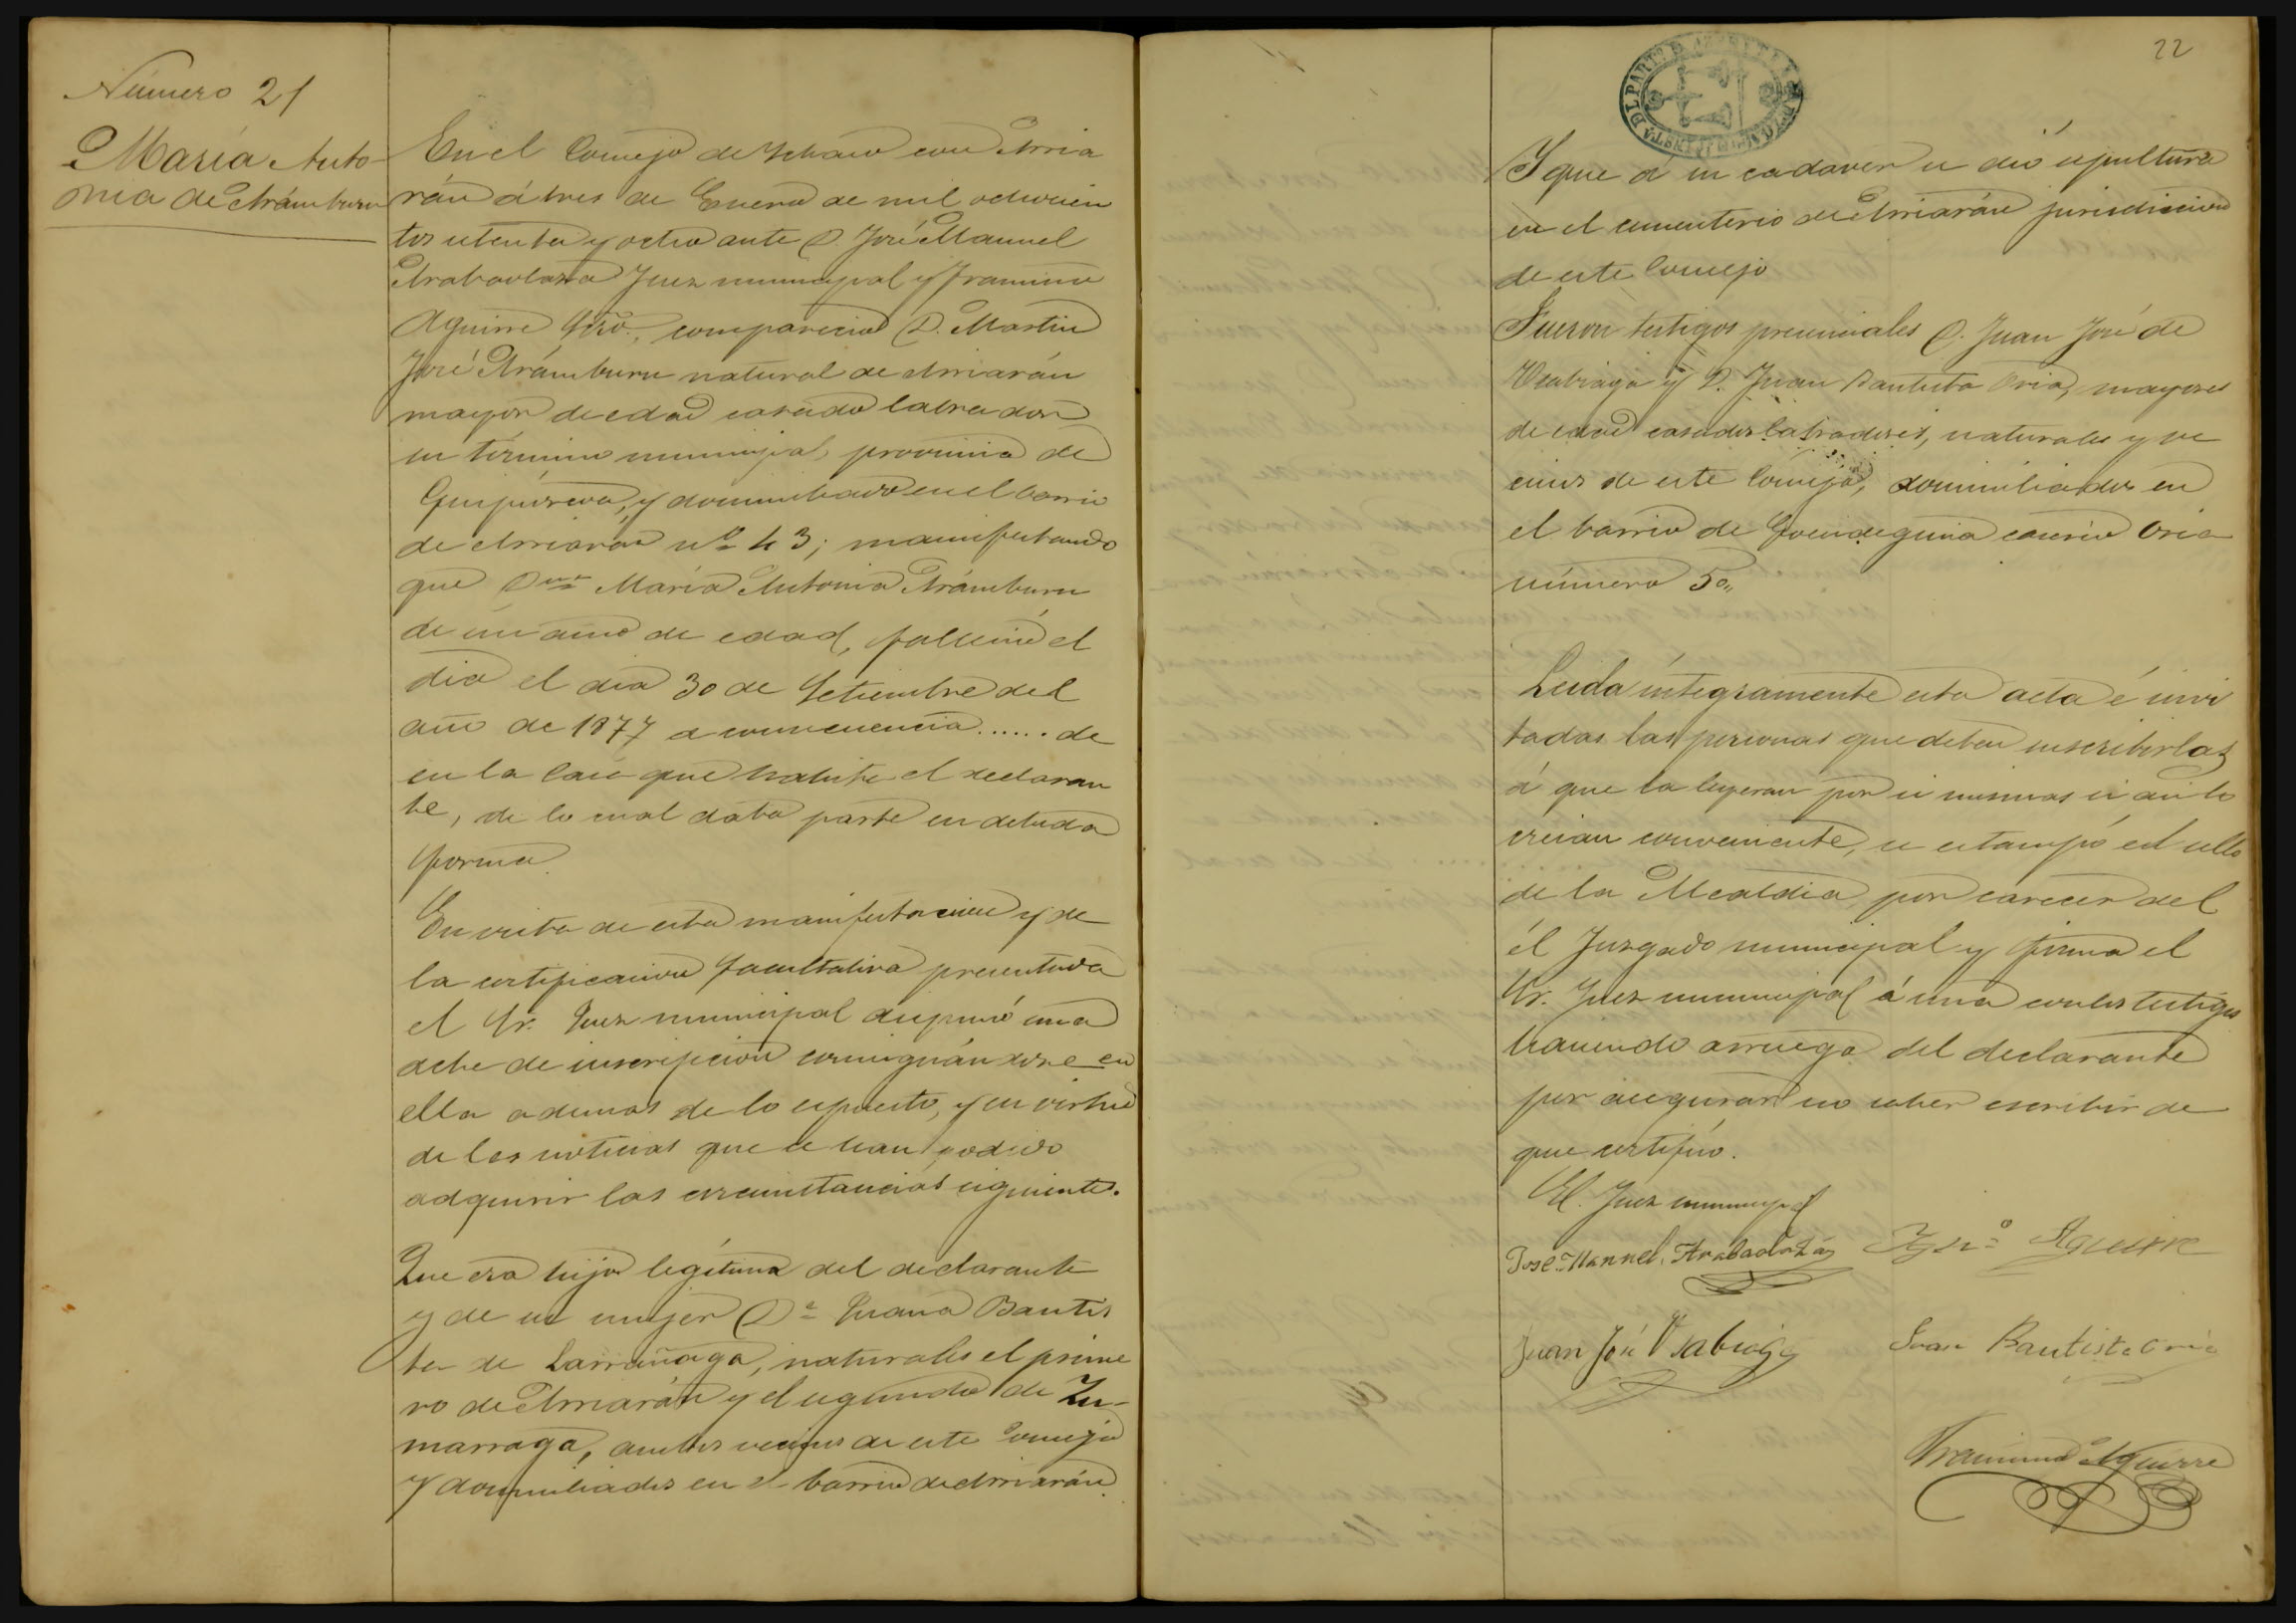 Número 21
María Anto
nia de Arámburu
En el Concejo de Ichaso con Arria
rán á tres de Enero de mil ochocien
tos setenta y ocho ante D. José Manuel
Arabaolaza Juez municipal y Francisco
Aguirre Srio., compareció D. Martin
José Arámburu natural de Arriarán
mayor de edad casado labrador
su término municipal, provincia de
Guipúzcoa, y domiciliado en el barrio
de Arriaran nº 43; manifestando
que Dña María Antonia Arámburu
de un año de edad, falleció el
dia el dia 30 de Setiembre del
año de 1877 a consecuencia ...... de
en la casa que habita el declaran
te, de lo cual daba parte en debida
forma.
En vista de esta manifestacion y de
la certificacion facultativa presentada
el Sr. Juez municipal dispuso una
acta de inscripcion consignándose en
ella ademas de lo espuesto, y en virtud
de las noticias que se han podido
adquirir las circunstancias siguientes.
Que era hija legítima del declarante
y de su mujer Dª Juana Bautis
ta de Larrañaga, naturales el prime
ro de Arriarán y el segundo de Zu-
marraga, ambos vecinos de este Concejo
y domiciliados en el barrio de Arriarán.
22
Y que á su cadaver se dió sepultura
en el cementerio de Arriarán jurisdiccion
de este Concejo
Fueron testigos presenciales D. Juan José de
Usabiaga y D. Juan Bautista Oria, mayores
de edad casados labradores, naturales y ve
cinos de este Concejo, domiciliados en
el barrio de caserio Oria
número 50,,
Leida íntegramente esta acta é invi
tadas las personas que deben suscribirlas
á que la leyeran por si mismas si asi lo
creian conveniente, se estampó el sello
de la Alcaldia, por carecer del
él Juzgado municipal y firma el
Sr. Juez municipal á una con los testigos
haciendo a ruego del declarante
por asegurar no saber escribir de
que certifico.
El Juez municipal
José Manuel Arabaolaza Ygnº Aguirre
Juan José Usabiaga Juan Bautista Oria
Francisco Aguirre